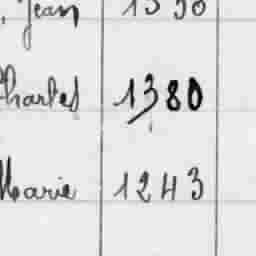 , Jean 1350
Charles 1380
Marie 1243